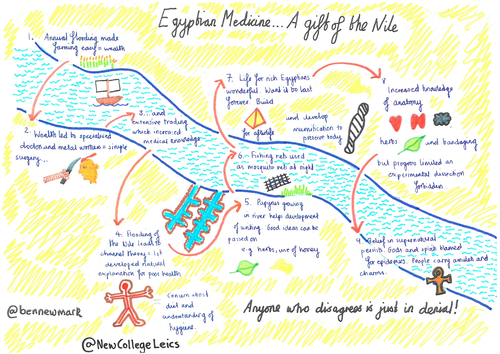 Egyptian Medicine... A gift of the Nile
1. Annual flooding made
farming easy = wealth
2. Wealth led to specialised
doctors and metal workers = simple
surgery...
3. ...and
extensive trading
which increased
medical knowledge
4. Flooding of
the Nile leads to
channel theory = 1st
developed natural
explanation for poor health
concern about
diet and
understanding of
hygiene.
5. Papyrus growing
in river helps development
of writing. Good ideas can be
passed on
e.g. herbs, use of honey
6. Fishing nets used
as mosquito nets at night
7. Life for rich Egyptians
wonderful. Want it to last
forever. Build
for afterlife
and develop
mummification to
preserve body.
8.
Increased knowledge
of anatomy
herbs and bandaging
but progress limited as
experimental dissection
forbidden
9. Belief in supernatural
Gods and spirits blamed
for epidemics. People carry amulets and
charms.
Anyone who disagrees is just in denial!
@bennewmark
@NewCollegeLeics